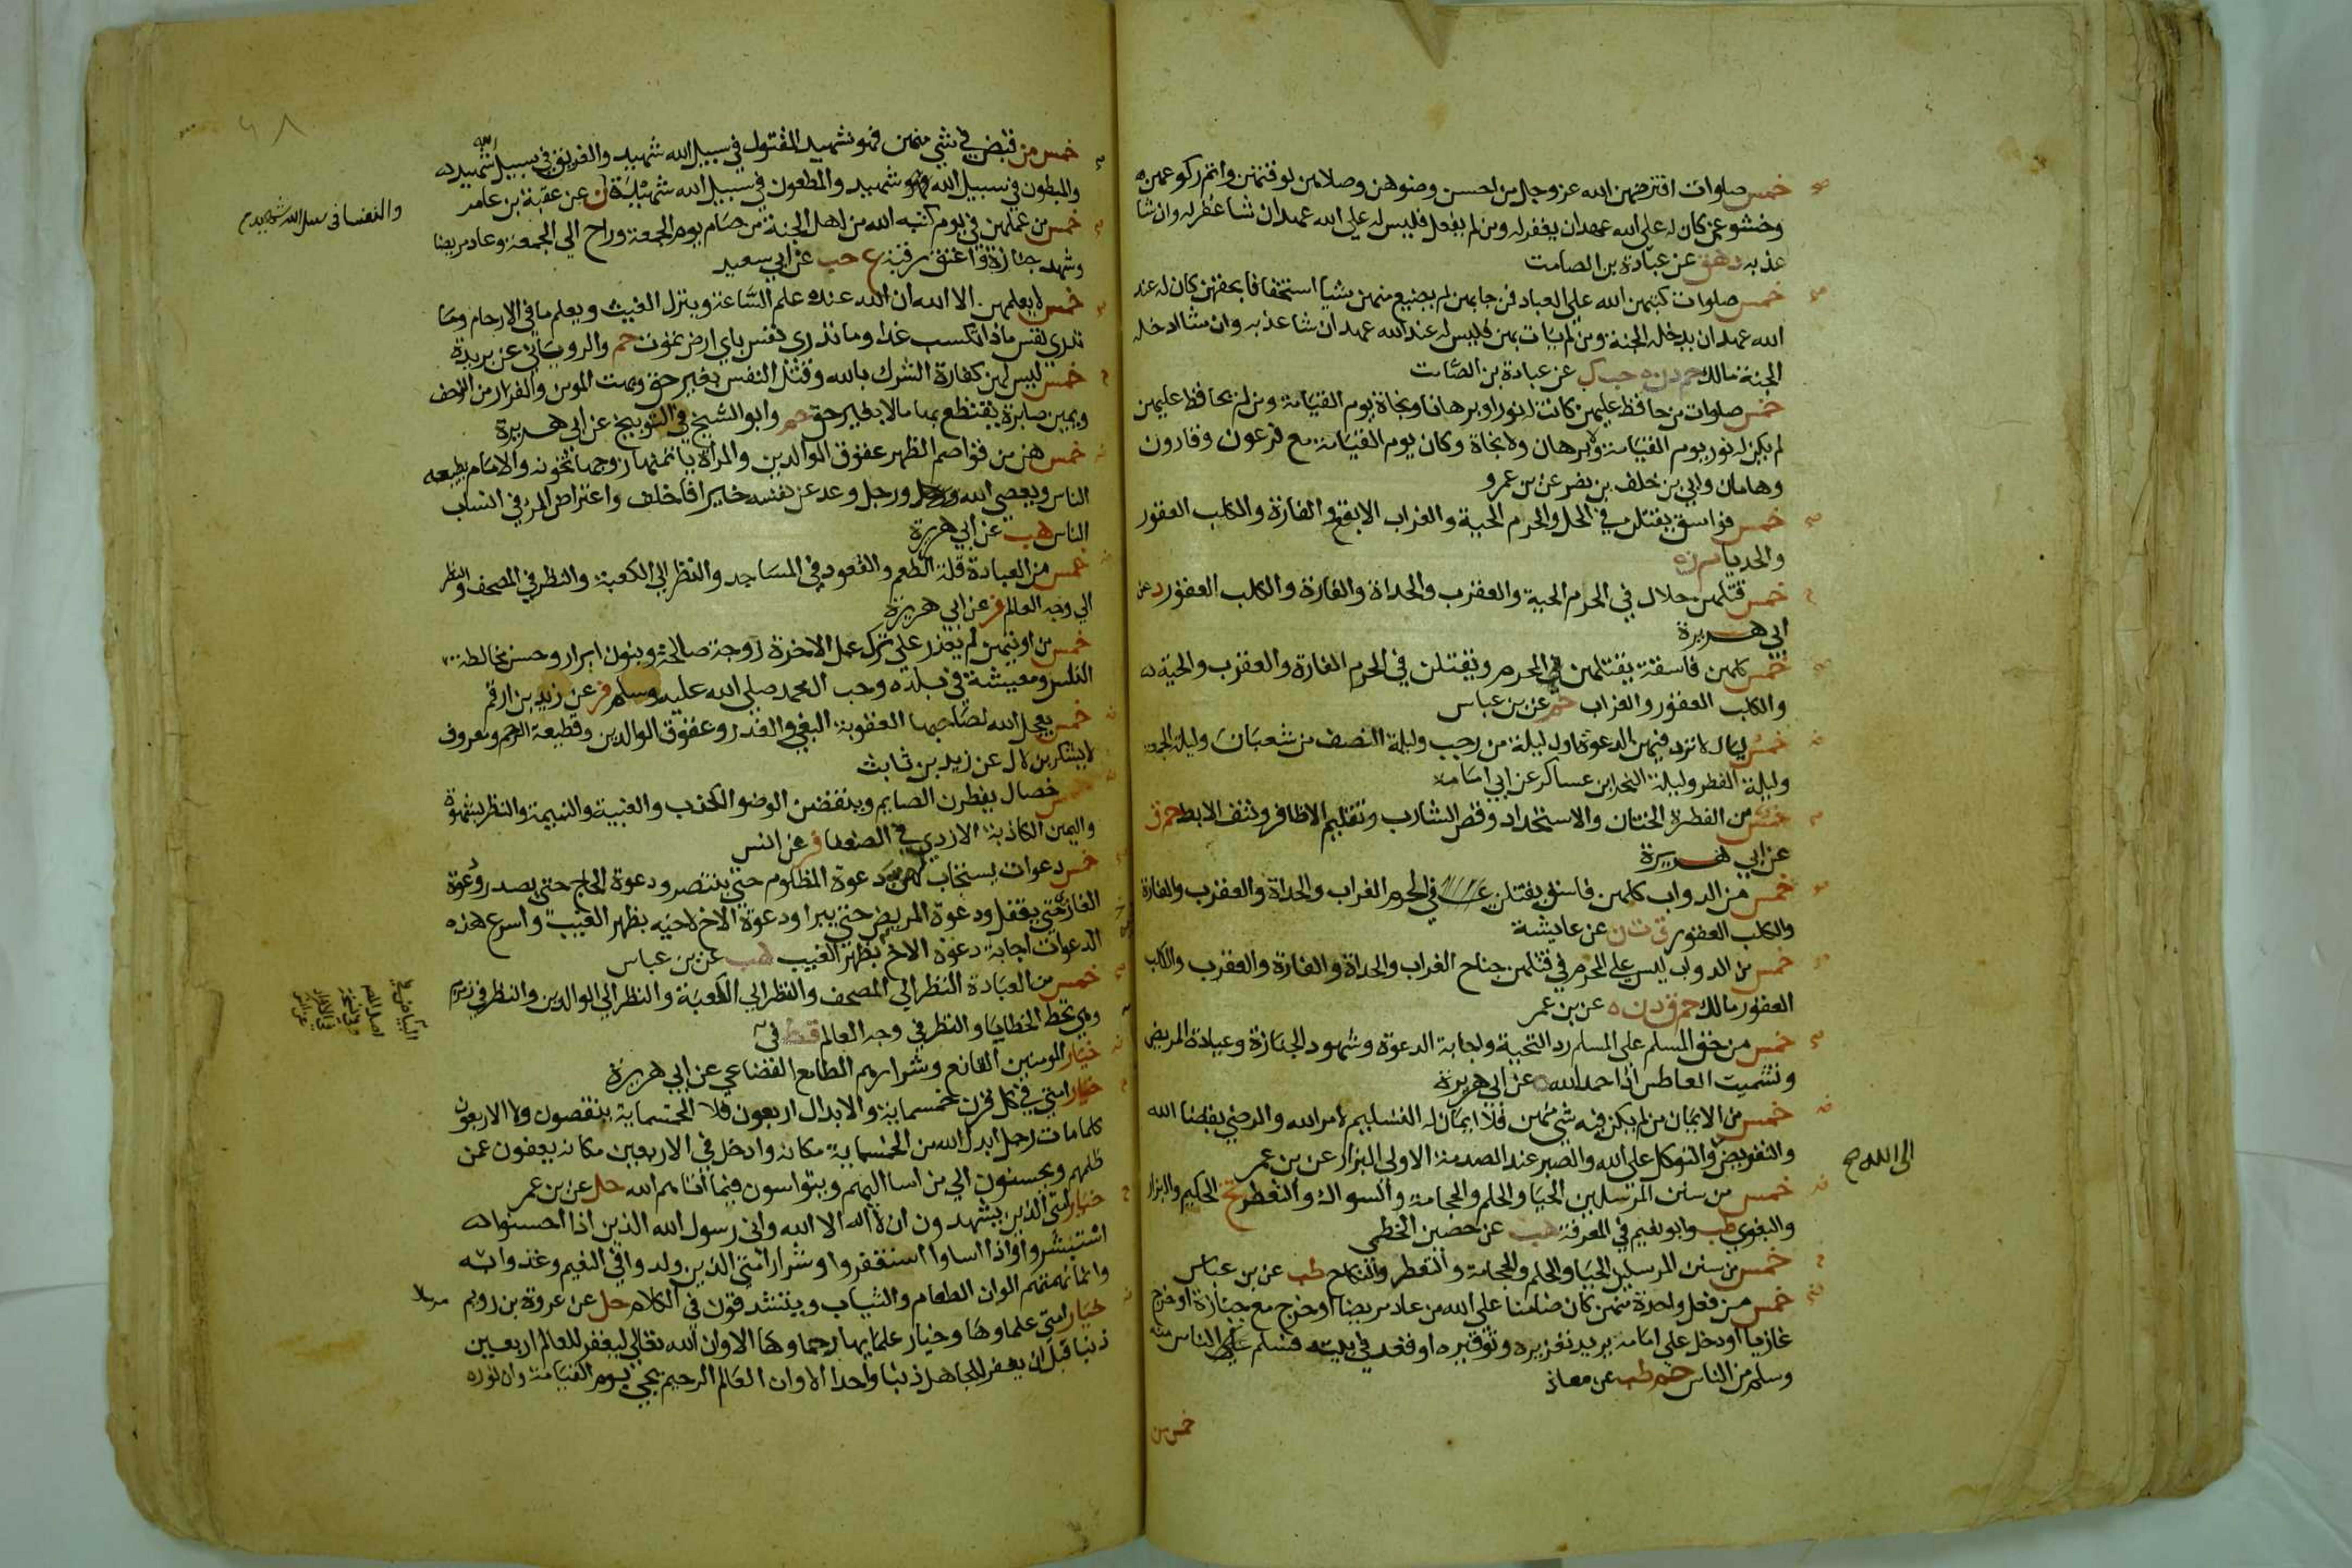 خمس صلوات افترضهن الله عز وجل من احسن وضوهن وصلاهن لوقتهن واتم ركوعهن
وخشوعهن كان له على الله عهد ان يغفر له ومن لم يفعل فليس له على الله عهد ان شا غفر له وان شا
عذبه دهق عن عبادة بن الصامت
خمس صلوات كتبهن الله على العباد فمن جا بهن لم يضيع منهن شيا استخفافا بحقهن كان له عند
الله عهد ان يدخله الجنة ومن لم يات بهن فليس له عند الله عهد ان شا عذبه وان شا ادخله
الجنة مالك حم دن ه حب ك عن عبادة بن الصامت
خمس صلوات من حافظ عليهن كانت له نورا وبرهانا ونجاة يوم القيامة ومن لم يحافظ عليهن
لم يكن له نور يوم القيامة ولا برهان ولا نجاة وكان يوم القيامة مع فرعون وقارون
وهامان وابي بن خلف بن نصر عن بن عمرو
خمس فواسق يقتلن في الحل والحرم الحية والغراب الابقع والفارة والكلب العقور
والحديا م ن ه
خمس قتلهن حلال في الحرم الحية والعقرب والحداة والفارة والكلب العقور د عن
ابي هريرة
خمس كلهن فاسقة يقتلهن المحرم ويقتلن في الحرم الفارة والعقرب والحية
والكلب العقور والغراب حم عن بن عباس
خمس ليال لا ترد فيهن الدعوة اول ليلة من رجب وليلة النصف من شعبان وليلة الجمعة
وليلة الفطر وليلة النحر ابن عساكر عن ابي امامة
خمس من الفطرة الختان والاستحداد وقص الشارب وتقليم الاظافر ونتف الابط حم ق
عن ابي هريرة
خمس من الدواب كلهن فاسق يقتلن في الحرم الغراب والحداة والعقرب والفارة
والكلب العقور ق ت ن عن عايشة
خمس من الدواب ليس على المحرم في قتلهن جناح الغراب والحداة والفارة والعقرب والكلب
العقور مالك حم ق د ن ه عن بن عمر
خمس من حق المسلم على المسلم رد التحية واجابة الدعوة وشهود الجنازة وعيادة المريض
وتشميت العاطس اذا حمد الله ه عن ابي هريرة
خمس من الايمان من لم يكن فيه شي منهن فلا ايمان له التسليم لامر الله والرضي بقضا الله
والتفويض والتوكل على الله والصبر عند الصدمة الاولى البزار عن بن عمر
الى الله صح
خمس من سنن المرسلين الحيا والحلم والحجامة والسواك والتعطر تخ الحكيم والبزار
والبغوي طب وابو نعيم في المعرفة هب عن حصين الخطمي
خمس من سنن المرسلين الحيا والحلم والحجامة والتعطر والنكاح طب عن بن عباس
خمس من فعل واحدة منهن كان ضامنا على الله من عاد مريضا او خرج مع جنازة او خرج
غازيا او دخل على امامه يريد تعزيره وتوقيره او قعد في بيته فسلم الناس منه
وسلم من الناس حم طب عن معاذ
خمس من
خمس من قبض في شي منهن فهو شهيد المقتول في سبيل الله شهيد والغريق في سبيل الله شهيد
والمبطون في سبيل الله شهيد والمطعون في سبيل الله شهيد ن عن عقبة بن عامر
والنفسا في سبيل الله شهيد
خمس من عملهن في يوم كتبه الله من اهل الجنة من صام يوم الجمعة وراح الى الجمعة وعاد مريضا
وشهد جنازة واعتق رقبة ع حب عن ابي سعيد
خمس لا يعلمهن الا الله ان الله عنده علم الساعة وينزل الغيث ويعلم ما في الارحام وما
تدري نفس ماذا تكسب غدا وما تدري نفس باي ارض تموت حم والروياني عن بريدة
خمس ليس لهن كفارة الشرك بالله وقتل النفس بغير حق وبهت المومن والفرار من الزحف
ويمين صابرة يقتطع بها مالا بغير حق حم وابو الشيخ في التوبيخ عن ابي هريرة
خمس هن من قواصم الظهر عقوق الوالدين والمراة ياتمنها زوجها تخونه والامام يطيعه
الناس ويعصي الله ورجل وعد عن نفسه خيرا فاخلف واعتراض المر في انساب
الناس هب عن ابي هريرة
خمس من العبادة قلة الطعم والقعود في المساجد والنظر الى الكعبة والنظر في المصحف والنظر
الى وجه العالم فر عن ابي هريرة
خمس من اوتيهن لم يعذر على ترك عمل الاخرة زوجة صالحة وبنون ابرار وحسن مخالطة
الناس ومعيشة في بلده وحب ال محمد صلى الله عليه وسلم فر عن زيد بن ارقم
خمس يعجل الله لصاحبها العقوبة البغي والغدر وعقوق الوالدين وقطيعة الرحم ومعروف
لا يشكر بن لال عن زيد بن ثابت
خمس خصال يفطرن الصايم وينقضن الوضو الكذب والغيبة والنميمة والنظر بشهوة
واليمين الكاذبة الازدي في الضعفا فر عن انس
خمس دعوات يستجاب لهن دعوة المظلوم حتى ينتصر ودعوة الحاج حتى يصدر ودعوة
الغازي حتى يقفل ودعوة المريض حتى يبرا ودعوة الاخ لاخيه بظهر الغيب واسرع هذه
الدعوات اجابة دعوة الاخ بظهر الغيب هب عن بن عباس
خمس من العبادة النظر الى المصحف والنظر الى الكعبة والنظر الى الوالدين والنظر في زمزم
وهي تحط الخطايا والنظر في وجه العالم قط في
خيار المومنين القانع وشرارهم الطامع القضاعي عن ابي هريرة
خيار امتي في كل قرن خمسماية والابدال اربعون فلا الخمسماية ينقصون ولا الاربعون
كلما مات رجل ابدل الله من الخمسماية مكانه وادخل في الاربعين مكانه يعفون عمن
ظلمهم ويحسنون الى من اسا اليهم ويتواسون فيما اتاهم الله حل عن بن عمر
خيار امتي الذين يشهدون ان لا اله الا الله واني رسول الله الذين اذا احسنوا
استبشروا واذا اساوا استغفروا وشرار امتي الذين ولدوا في النعيم وغذوا به
وانما نهمتهم الوان الطعام والثياب ويتشدقون في الكلام حل عن عروة بن رويم مرسلا
خيار امتي علماوها وخيار علمايها رحماوها الا وان الله تعالى ليغفر للعالم اربعين
ذنبا قبل ان يغفر للجاهل ذنبا واحدا الا وان العالم الرحيم يجي يوم القيامة وان نوره